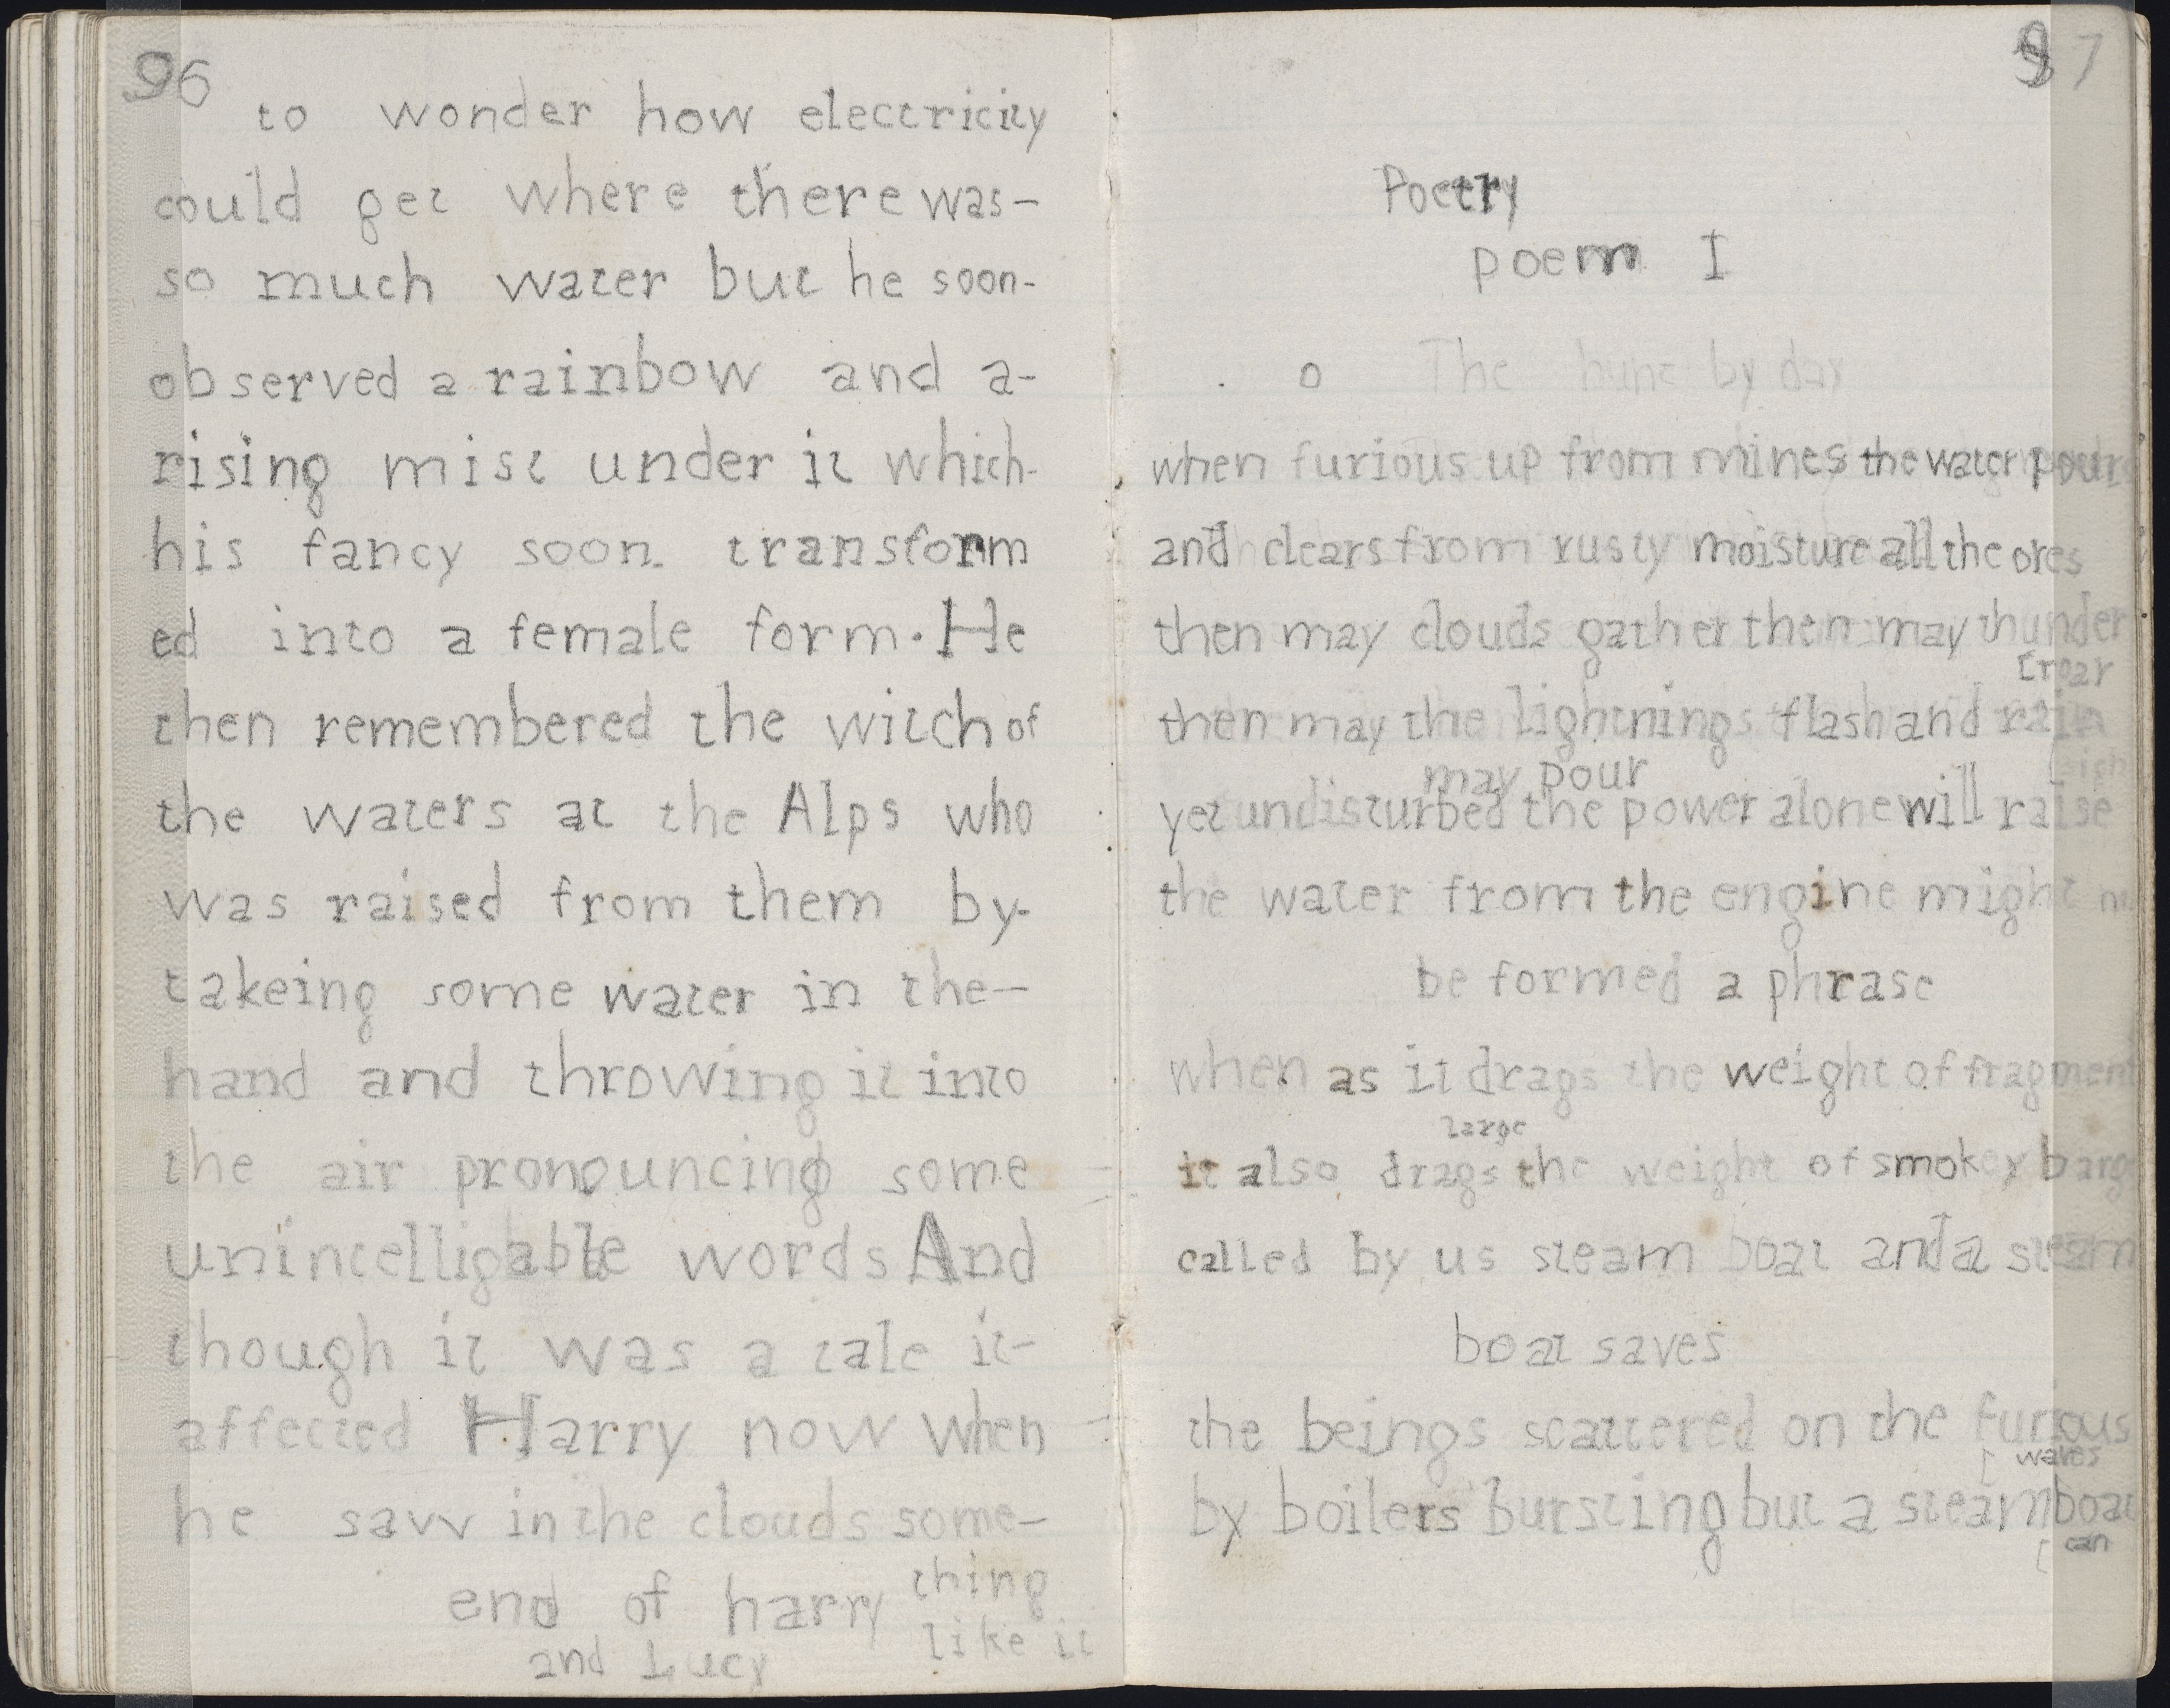 96
to wonder how electricity
could get where there was-
so much water but he soon-
observed a rainbow and a-
rising mist under it which-
his fancy soon transform
ed into a female form. He
then remembered the witch of
the waters at the Alps who
was raised from them by-
takeing some water in the-
hand and throwing it into
the air pronouncing some
unintelligable words And
though it was a tale it-
affected Harry now when
he saw in the clouds some-
thing
end of harry
like it
and Lucy
97
Poetry
poem I
The by day
when furious up from mines the water pours
and clears from rusty moisture all the ores
then may clouds gather then may thunder
[roar
then may the lightnings flash and rain
may pour
yet undisturbed the power alone will raise
the water from the engine might
be formed a phrase
when as it drags the weight of fragment
large
it also drags the weight of smokey barge
called by us steam boat and a steam
boat saves
the beings scattered on the furious
[ waves
by boilers bursting but a steamboat
[ can